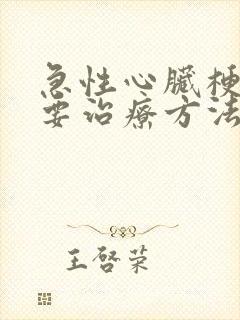 急性心臟梗
要治療方法
王啓荣